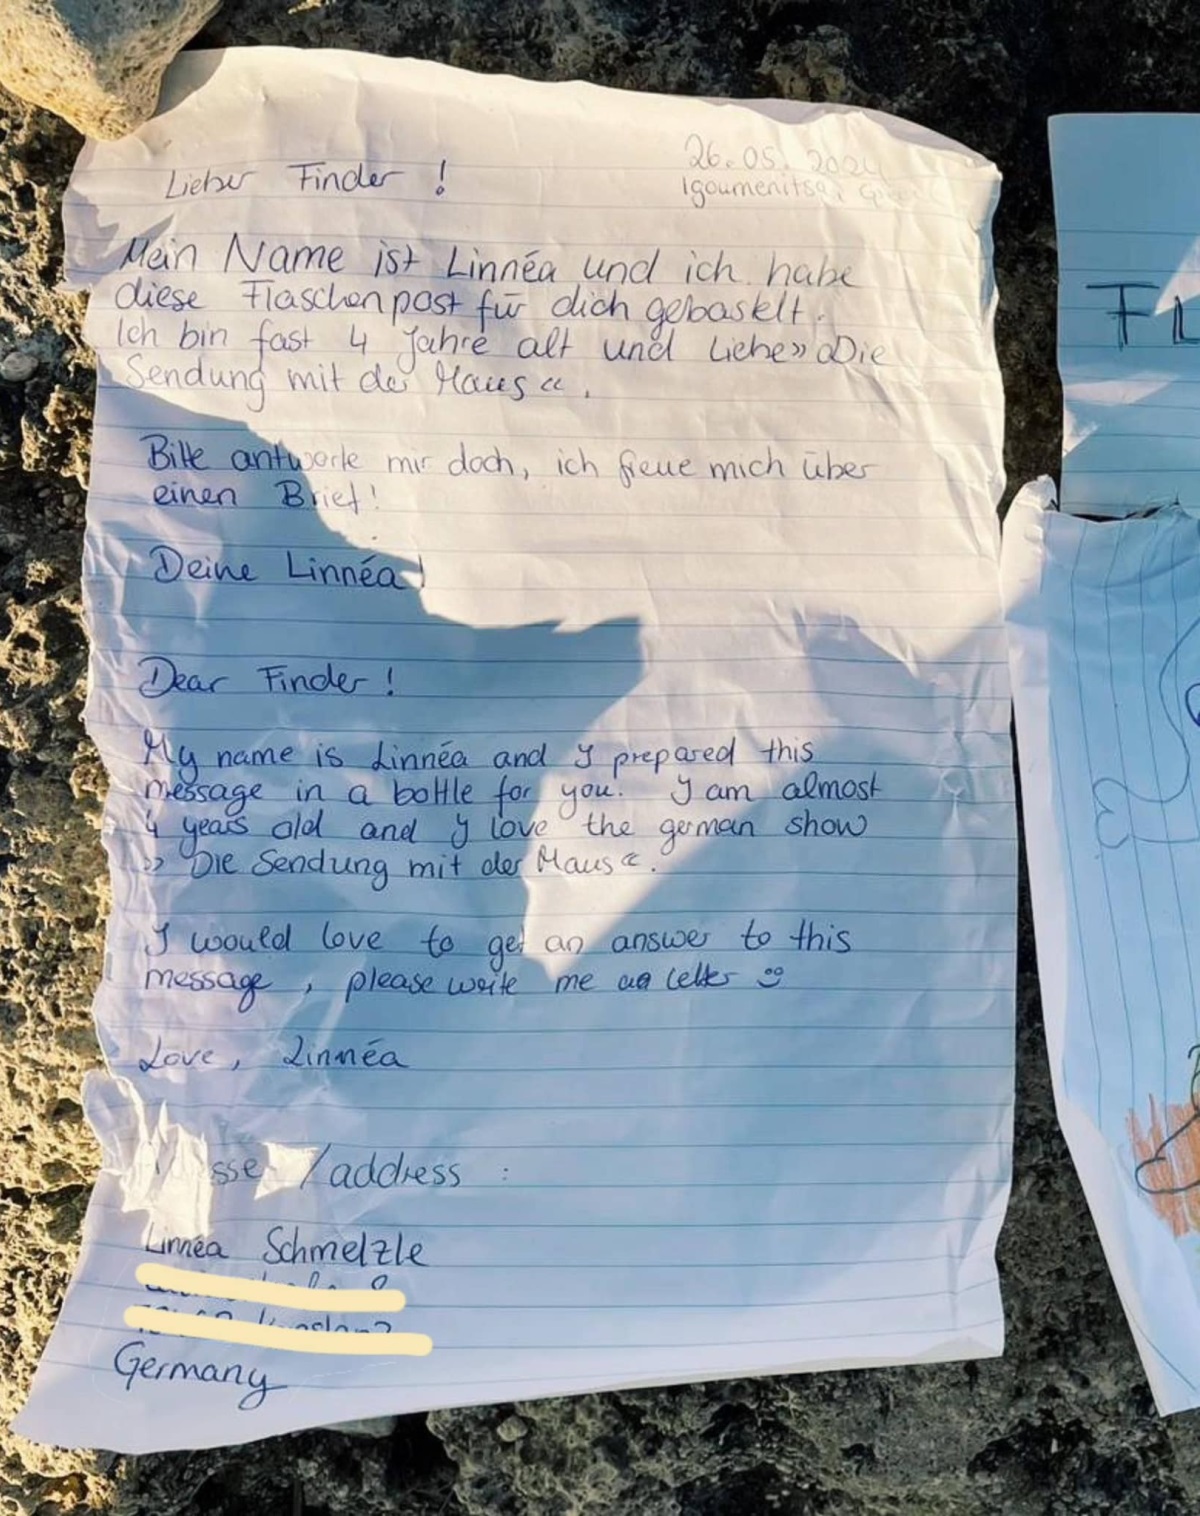 26.05.2024
Igoumenitsa,
Lieber Finder !
Mein Name ist Linnéa und ich habe
diese Flaschenpost für dich gebastelt.
Ich bin fast 4 Jahre alt und liebe »Die
Sendung mit der Maus«.
Bitte antworte mir doch, ich freue mich über
einen Brief!
Deine Linnéa!
Dear Finder !
My name is Linnéa and I prepared this
message in a bottle for you. I am almost
4 years old and I love the german show
»Die Sendung mit der Maus«.
I would love to get an answer to this
message, please write me a letter ☺
Love, Linnéa
/address :
Linnéa Schmelzle
Germany
FL